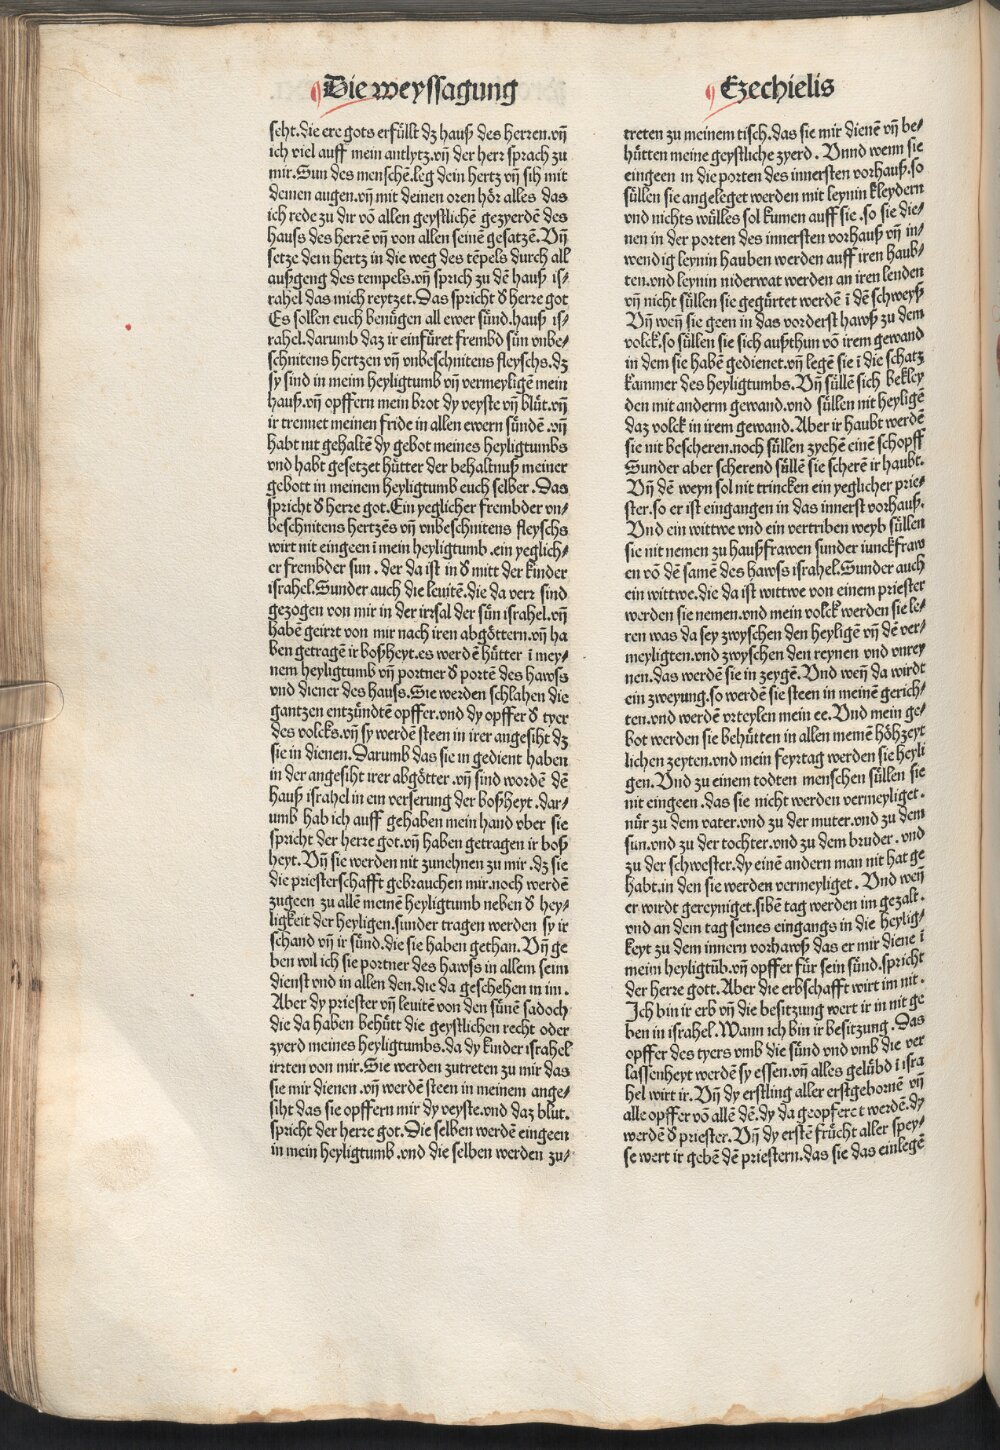 Die weyssagung
Ezechielis
seht.die ere gots erfüllt dz hauß des herren.vñ
ich viel auff mein antlytz.vñ der herr sprach zu
mir.Sun des menschē.leg dein hertz vñ sih mit
deinen augen.vñ mit deinen oren hör alles das
ich rede zu dir võ allen geystlichē gezyerdē des
hauss des herrē vñ von allen seinē gesatzē.Vñ
setze dein hertz in die weg des tēpels durch all
außgeng des tempels.vñ sprich zu dē hauß is⸗
rahel das mich reytzet.Das spricht d̕ herre got
Es sollen euch benügen all ewer sünd.hauß is⸗
rahel.darumb daz ir einfüret frembd sün vnbe⸗
schnitens hertzen vñ vnbeschnitens fleyschs.dz
sy sind in meim heyligtumb vñ vermeyligē mein
hauß.vñ opffern mein brot dy veyste vñ blůt.vñ
ir trennet meinen fride in allen ewern sünden.vñ
habt nit gehaltē dy gebot meines heyligtumbs
vnd habt gesetzet hütter der behaltnuß meiner
gebott in meinem heyligtumb euch selber.Das
spricht d̕ herre got.Ein yeglicher frembder vn⸗
beschnitens hertzēs vñ vnbeschnitens fleyschs
wirt nit eingeen ī mein heyligtumb.ein yeglich⸗
er frembder sun.der da ist in d̕ mitt der kinder
israhel.Sunder auch die leuitē.die da verr sind
gezogen von mir in der irrsal der sün israhel.vñ
habē geirrt von mir nach iren abgöttern.vñ ha
ben getragē ir boßheyt.es werdē hütter ī mey⸗
nem heyligtumb vñ portner d̕ portē des hawss
vnd diener des hauss.Sie werden schlahen die
gantzen entzündtē opffer.vnd dy opffer d̕ tyer
des volcks.vñ sy werdē steen in irer angesiht dz
sie in dienen.Darumb das sie in gedient haben
in der angesiht irer abgötter.vñ sind wordē dē
hauß israhel in ein verserung der boßheyt.dar⸗
umb hab ich auff gehaben mein hand vber sie
spricht der herre got.vñ haben getragen ir boß
heyt.Vñ sie werden nit zunehnen zu mir.dz sie
die priesterschafft gebrauchen mir.noch werdē
zugeen zu allē meinē heyligtumb neben d̕ hey⸗
ligkeit der heyligen.sunder tragen werden sy ir
schand vñ ir sünd.die sie haben gethan.Vñ ge
ben wil ich sie portner des hawss in allem seim
dienst vnd in allen den.die da geschehen in im.
Aber dy priester vñ leuitē von den sünē sadoch
die da haben behütt die geystlichen recht oder
zyerd meines heyligtumbs.da dy kinder israhel
irrten von mir.Sie werden zutreten zu mir das
sie mir dienen.vñ werdē steen in meinem ange⸗
siht das sie opffern mir dy veyste.vnd daz blut.
spricht der herre got.Die selben werdē eingeen
in mein heyligtumb.vnd die selben werden zu⸗
treten zu meinem tisch.das sie mir dienē vñ be⸗
hütten meine geystliche zyerd.Vnnd wenn sie
eingeen in die porten des innersten vorhauß.so
süllen sie angeleget werden mit leynin kleydern
vnd nichts wülles sol kumen auff sie.so sie die⸗
nen in der porten des innersten vorhauß vñ in⸗
wendig leynin hauben werden auff iren haub⸗
ten.vnd leynin niderwat werden an iren lenden
vñ nicht süllen sie gegürtet werdē ī dē schweyß
Vñ weñ sie geen in das vorderst hawß zu dem
volck.so süllen sie sich außthun võ irem gewand
in dem sie habē gedienet.vñ legē sie ī die schatz
kammer des heyligtumbs.Vñ süllē sich bekley
den mit anderm gewand.vnd süllen nit heyligē
daz volck in irem gewand.Aber ir haubt werdē
sie nit bescheren.noch süllen zyehē einē schopff
Sunder aber scherend süllē sie scherē ir haubt.
Vñ dē weyn sol nit trincken ein yeglicher prie⸗
ster.so er ist eingangen in das innerst vorhauß.
Vnd ein wittwe vnd ein vertriben weyb süllen
sie nit nemen zu haußfrawen sunder iunckfraw
en võ dē samē des hawss israhel.Sunder auch
ein wittwe.die da ist wittwe von einem priester
werden sie nemen.vnd mein volck werden sie le⸗
ren was da sey zwyschen den heyligē vñ dē ver⸗
meyligten.vnd zwyschen den reynen vnd vnrey
nen.das werdē sie in zeygē.Vnd weñ da wirdt
ein zweyung.so werdē sie steen in meinē gerich⸗
ten.vnd werdē vrteylen mein ee.Vnd mein ge⸗
bot werden sie behütten in allen meinē höhzeyt
lichen zeyten.vnd mein feyrtag werden sie heyli
gen.Vnd zu einem todten menschen süllen sie
nit eingeen.das sie nicht werden vermeyliget.
nůr zu dem vater.vnd zu der muter.vnd zu dem
sun.vnd zu der tochter.vnd zu dem bruder.vnd
zu der schwester.dy einē andern man nit hat ge
habt.in den sie werden vermeyliget.Vnd weñ
er wirdt gereyniget.sibē tag werden im gezalt.
vnd an dem tag seines eingangs in die heylig⸗
keyt zu dem innern vorhawß das er mir diene ī
meim heyligtūb.vñ opffer für sein sünd.spricht
der herre gott.Aber die erbschafft wirt im nit.
Ich bin ir erb vñ die besitzung wert ir in nit ge
ben in israhel.Wann ich bin ir besitzung.Das
opffer des tyers vmb die sünd vnd vmb die ver
lassenheyt werdē sy essen.vñ alles gelübd ī isra
hel wirt ir.Vñ dy erstling aller erstgebornē vñ
alle opffer võ allē dē.dy da geopferet werdē.dy
werdē d̕ priester.Vñ dy erstē frücht aller spey⸗
se wert ir gebē dē priestern.das sie das einlegē